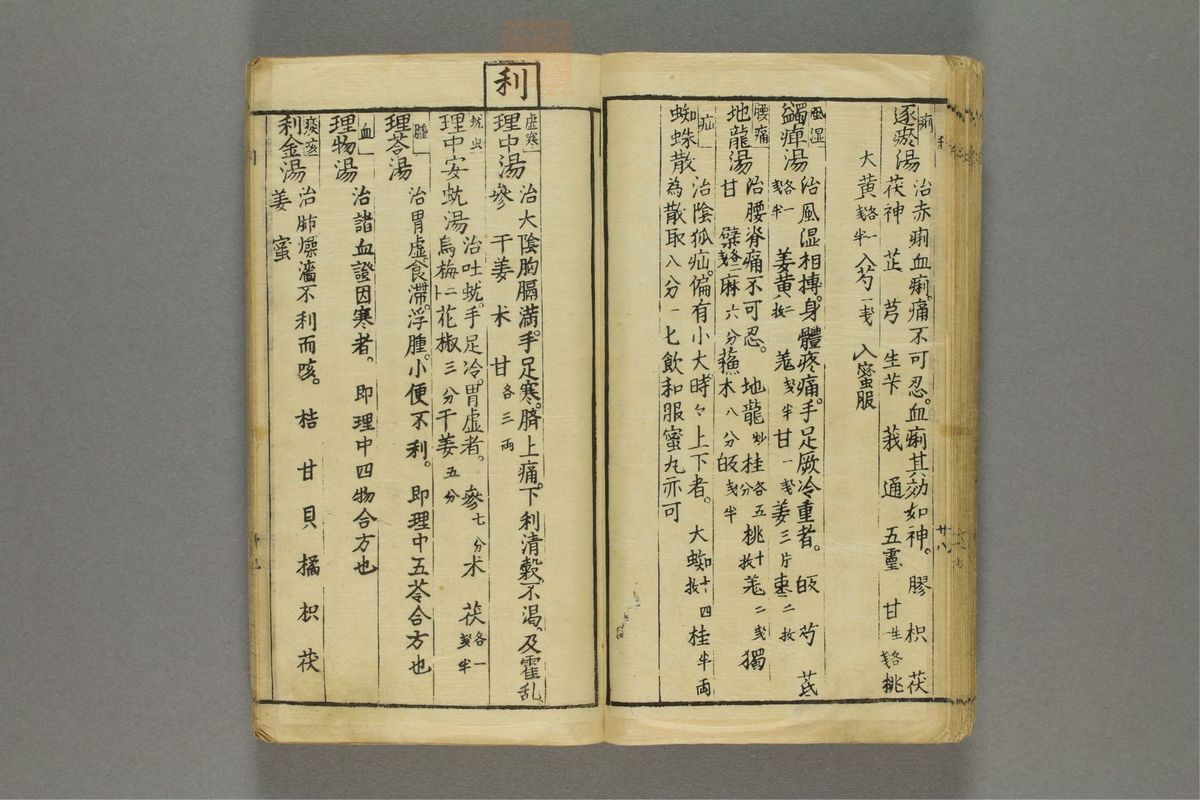 痢
逐瘀湯 治赤痢血痢。痛不可忍。血痢其効如神。膠 枳 茯
茯神 芷 芎 生芐 莪 通 五靈 甘生各 桃
大黄各一戔半 入芍一戔 入蜜服
風湿
蠲痺湯 治風湿相搏。身體疼痛。手足厥冷重者。皈 芍 芪
各一戔半 姜黄二枚 羌戔半 甘一戔 姜三片 枣二枚
腰痛
地龍湯 治腰脊痛不可忍。 地龍炒 桂各五分 桃十枚 羌二戔 獨
甘 檗各二戔 麻六分 蘓木八分 皈戔半
疝
蜘蛛散 治陰狐疝。偏有小大。時々上下者。 大蜘十四枚 桂半両
為散取八分一匕飲和服蜜丸亦可
廿八
利
虚寒
理中湯 治大陰胸膈満。手足寒。臍上痛。下利清穀。不渴。及霍乱
參 干姜 术 甘各三両
蚘虫
理中安蚘湯 治吐蚘。手足冷。胃虚者。 參七分 术 茯各一戔半
烏梅二 花椒三分 干姜五分
腫
理苓湯 治胃虚食滞。浮腫。小便不利。 即理中五苓合方也
血
理物湯 治諸血證因寒者。 即理中四物合方也
痰咳
利金湯 治肺燥濇不利而咳。 桔 甘 貝 橘 枳 茯
姜 蜜